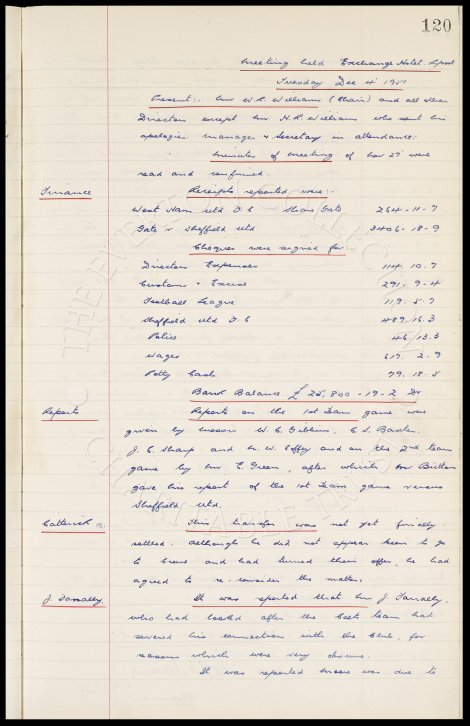 120
Meeting held Exchange Hotel. L'pool
Tuesday Dec 4th 1951
Present:- Mr W. R. Williams (Chair) and all other
Directors except Mr H. R. Williams who sent his
apologies. Manager & Secretary in attendance.
Minutes of Meeting of Nov 27th were
read and confirmed.
Finance Receipts reported were:-
West Ham Utd F.C Share Gate 264-11-7
Gate v Sheffield Utd 3406-18-9
Cheques were signed for:-
Directors Expenses 114. 10. 7
Customs & Excise 291. 9-4
Football League 119. 5. 7
Sheffield Utd F.C 487. 16. 3
Police 46. 13. 3
Wages 617. 2. 9
Petty Cash 79. 18. 5
Bank Balance £25,800-19-2 Dr
Reports Reports on the 1st Team game were
given by Messrs W. C. Gibbins, C. S. Baxter,
J. C. Sharp and N. W. Coffey and on the 2nd team
game by Mr E Green, after which Mr Britton
gave his report of the 1st Team game versus
Sheffield Utd.
Catterick This transfer was not yet finally
settled. Although he did not appear keen to go
to Crewe and had turned their offer, he had
agreed to re-consider the matter.
J. Fannally. It was reported that Mr J. Fannally.
who had looked after the Colts team had
severed his connection with the Club, for
reasons which were very obscure.
It was reported was due to